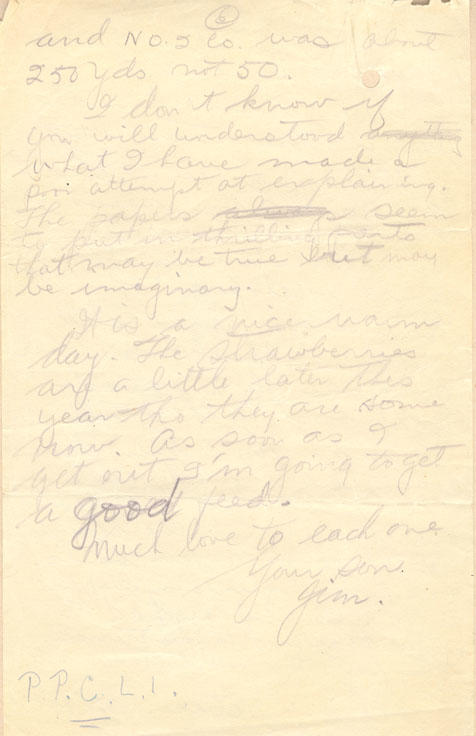 6
and No. 2 Co. was about
250 yds not 50.
I don't know if
you will understood anything
what I have made a
poor attempt at explaining.
The papers always seem
to put in thrilling parts
that may be true but may
be imaginary.
It is a nice warm
day. The strawberries
are a little later this
year tho they are some
now. As soon as I
get out I'm going to get
a good feed.
Much love to each one
Your son
Jim.
P.P.C.L.I.